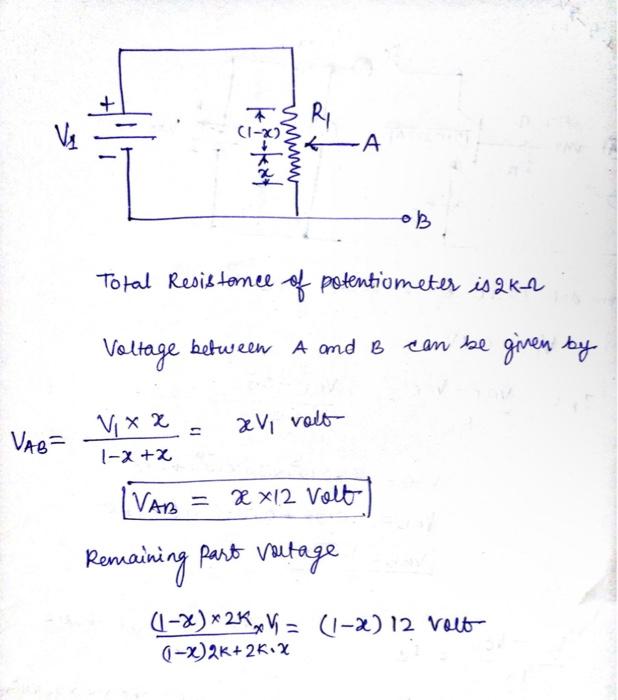 +
V1
-
(1-x)
x
R1
A
B
Total Resistance of potentiometer is 2K-Ω
Voltage between A and B can be given by
VAB = V1 × x / 1-x+x = xV1 volt
VAB = x×12 Volt
Remaining part voltage
(1-x)×2K×V1 / (1-x)2K+2K·x = (1-x) 12 Volt